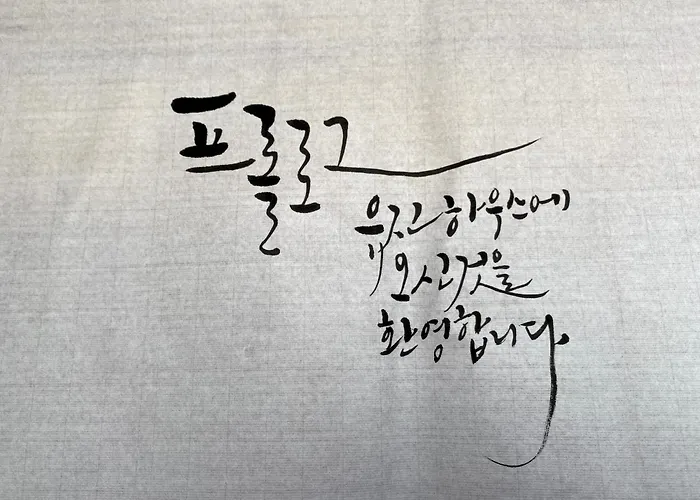 프롤로그
유진하우스에
오신것을
환영합니다.